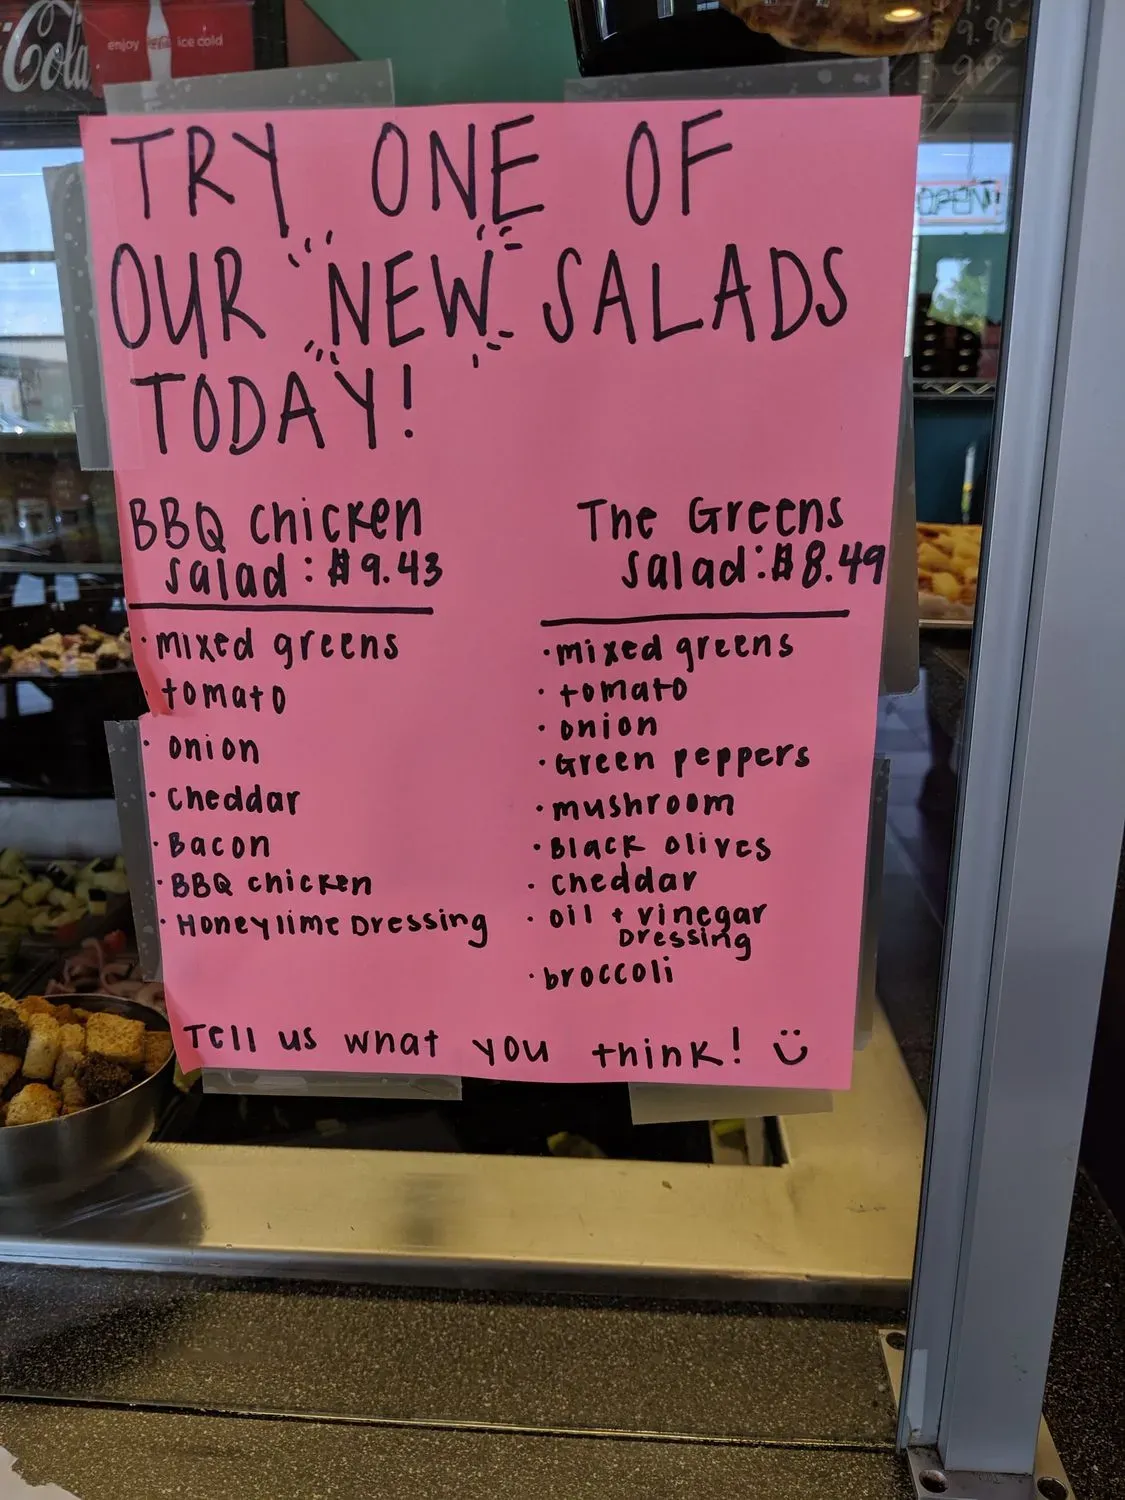 Cola
enjoy Coke ice cold
9.90
OPEN
TRY ONE OF
OUR NEW SALADS
TODAY!
BBQ chicken
salad: $9.43
· mixed greens
· tomato
· onion
· cheddar
· Bacon
· BBQ chicken
· Honeylime Dressing
The Greens
salad: $8.49
· mixed greens
· tomato
· onion
· Green peppers
· mushroom
· Black olives
· cheddar
· oil + vinegar
Dressing
· broccoli
Tell us what you think!